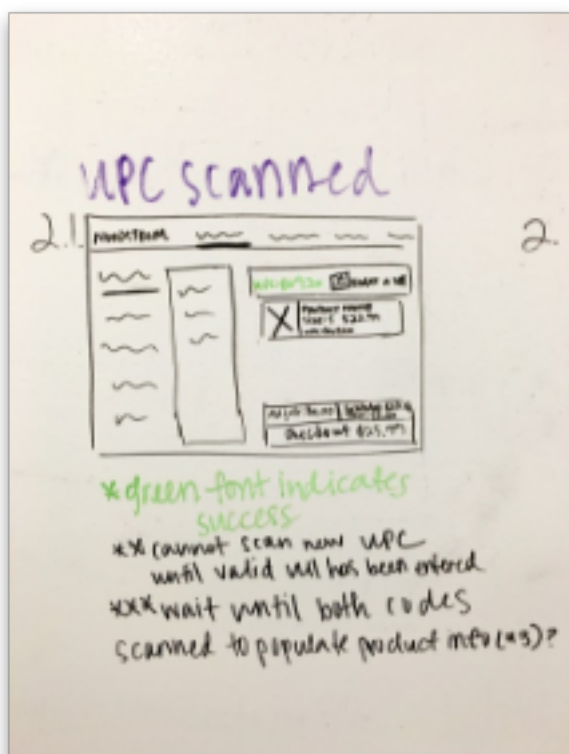 UPC scanned
2.1.
2.
NORDSTROM
PRODUCT NAME
Checkout
*green font indicates
success
** cannot scan new UPC
until valid has been entered
*** wait until both codes
scanned to populate product info